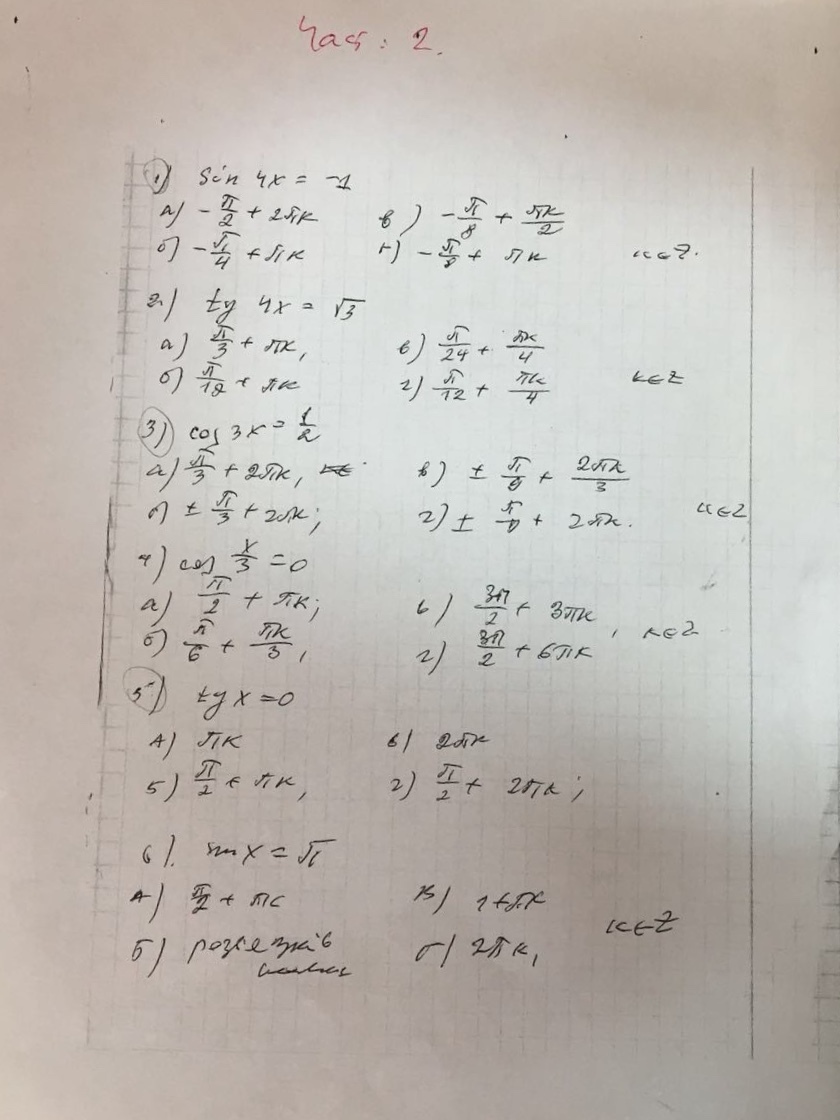 Час: 2.
1) sin 4x = -1
а) -π/2 + 2πк в) -π/8 + πк/2
б) -π/4 + πк г) -π/8 + πк к∈Z.
2) tg 4x = √3
а) π/3 + πк, в) π/24 + πк/4
б) π/12 + πк г) π/12 + πк/4 к∈Z
3) cos 3x = 1/2
а) π/3 + 2πк, в) ± π/9 + 2πк/3
б) ± π/3 + 2πк; г) ± π/9 + 2πк. к∈Z
4) cos x/3 = 0
а) π/2 + πк; в) 3π/2 + 3πк
б) π/6 + πк/3, г) 3π/2 + 6πк , к∈Z
5) tg x = 0
А) πк в) 2πк
Б) π/2 + πк, г) π/2 + 2πк;
6). sin x = π
А) π/2 + πк В) 1 + πк
Б) розв'язків немає г) 2πк, к∈Z